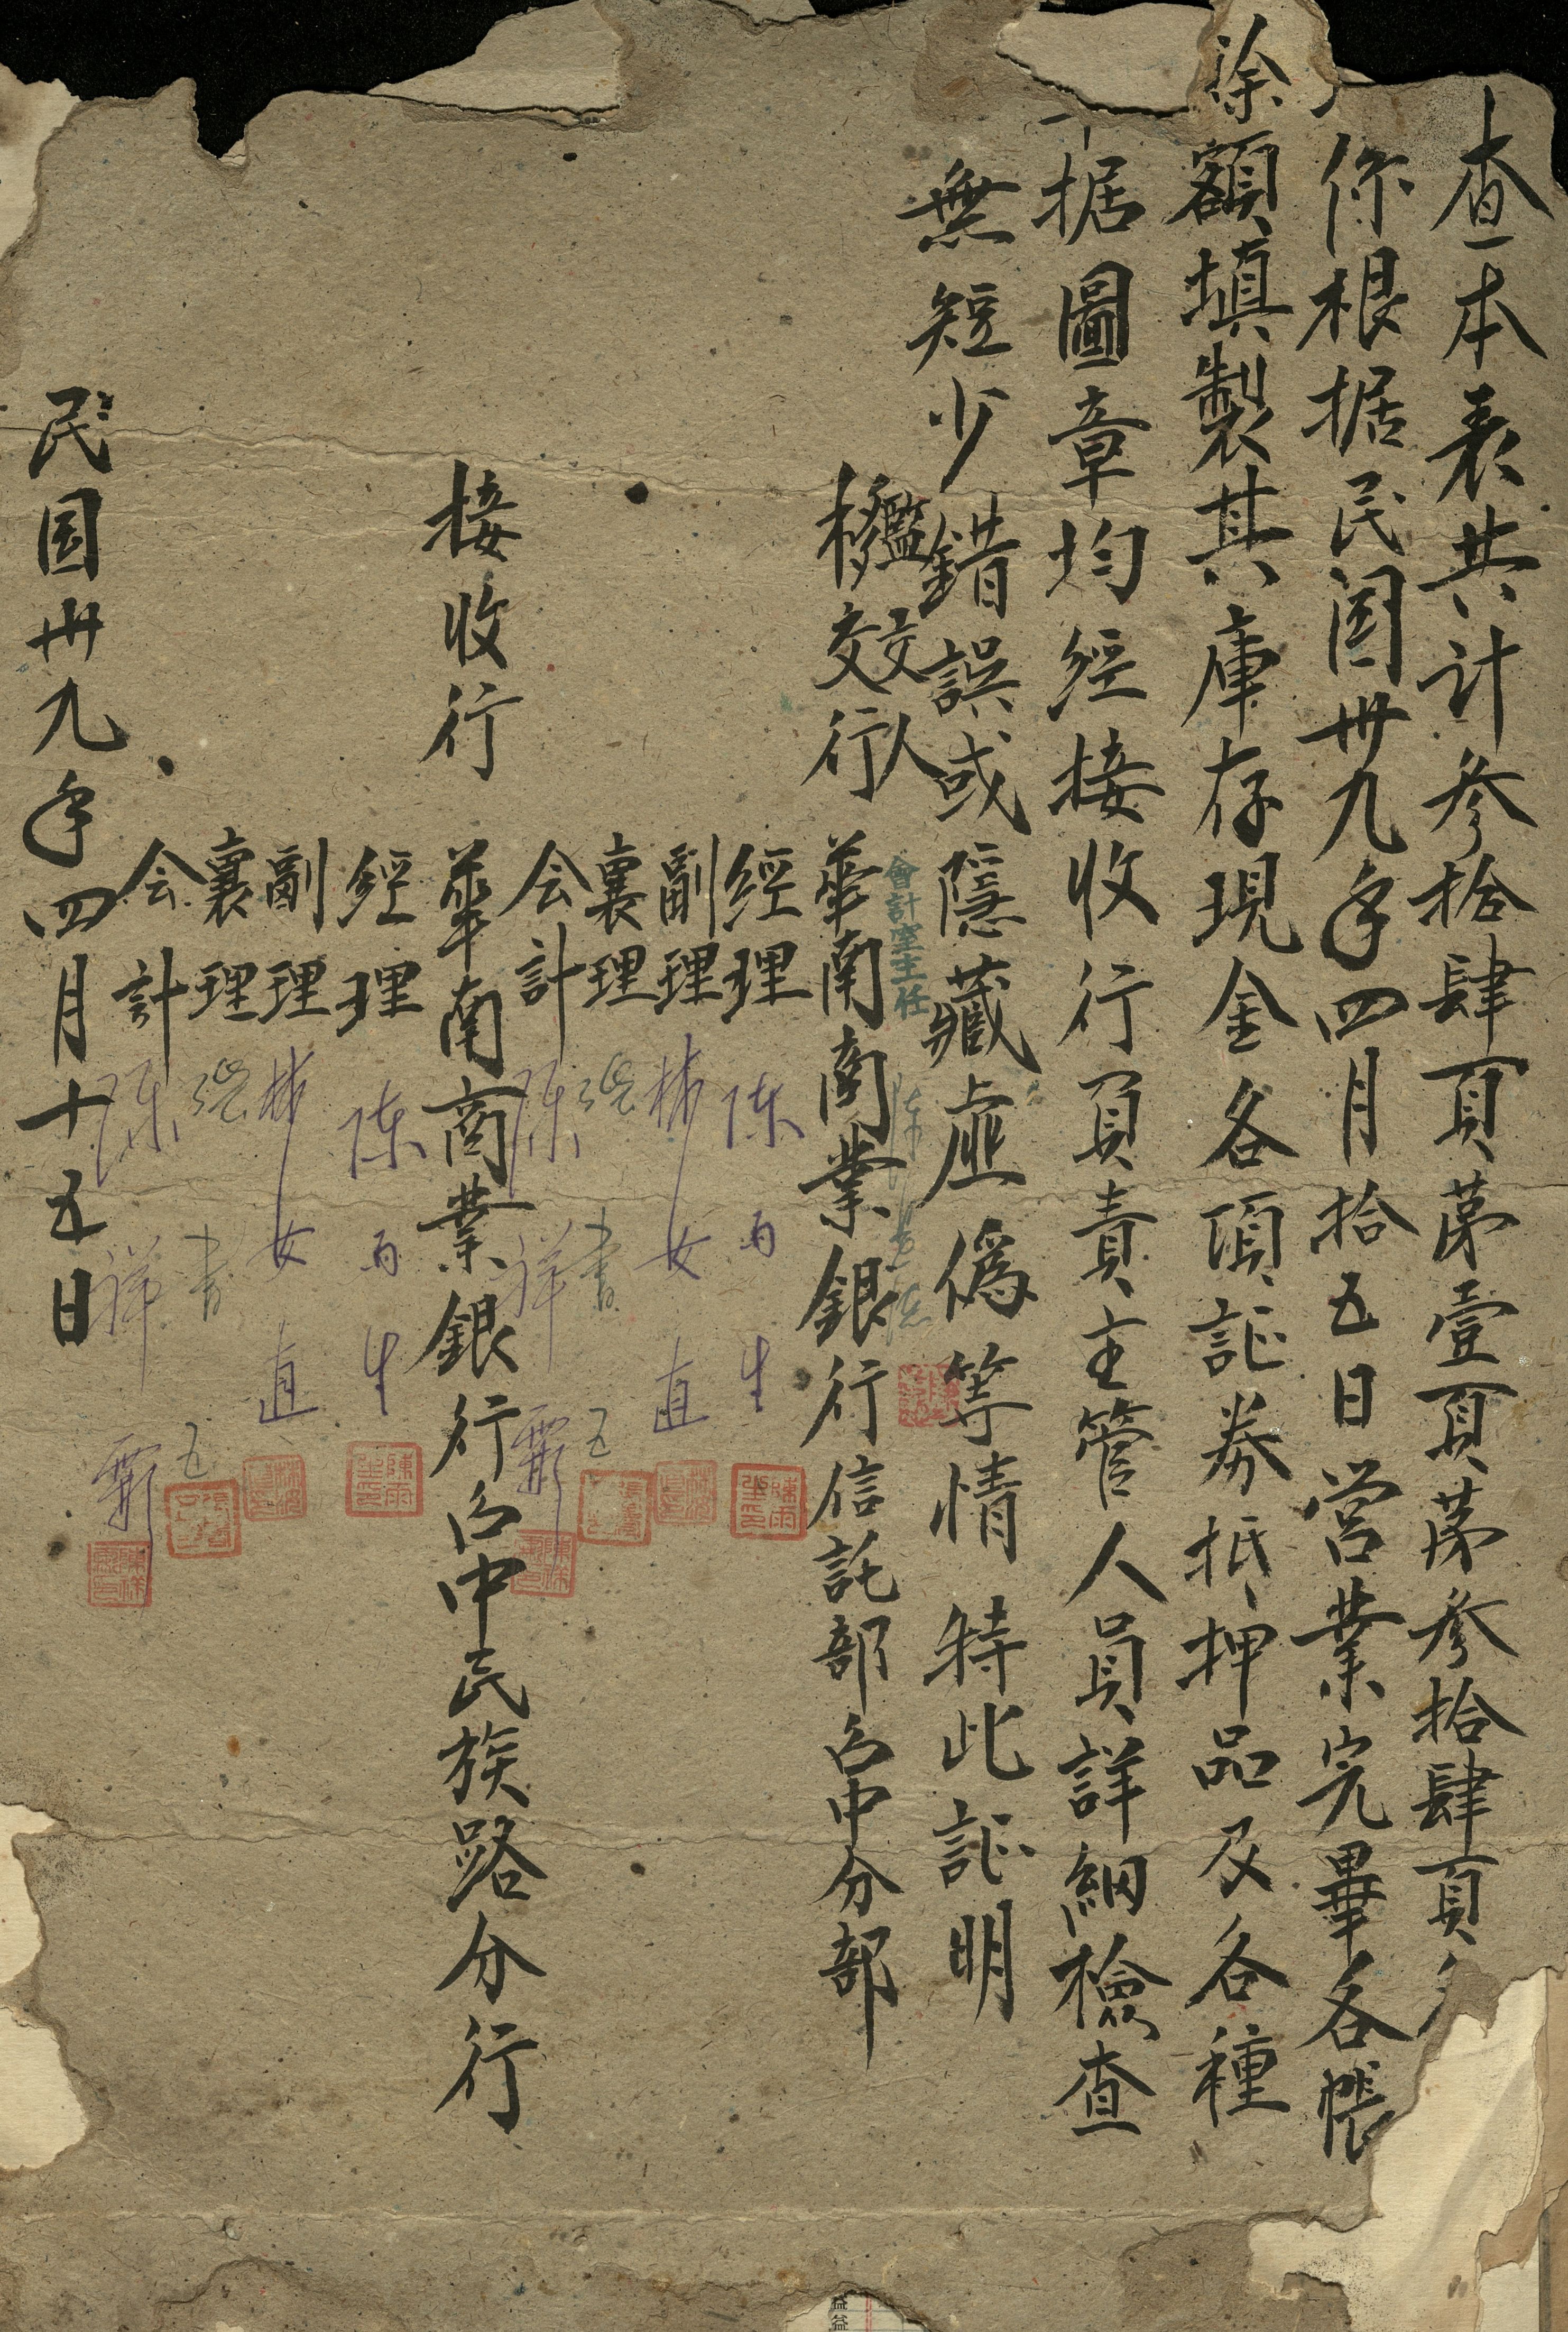 查本表共計參拾肆頁第壹頁第參拾肆頁
你根据民国卅九年四月拾五日営業完畢各帳
除額填製其庫存現金各項証券抵押品及各種
据圖章均經接收行負責主管人員詳細檢查
無短少錯誤或隱藏虛偽等情特此証明
監交人
會計室主任
移交行 華南商業銀行信託部台中分部
經理 陈雨生
副理 林女直
襄理 張書五
会計 陈祥霸
接收行 華南商業銀行台中民族路分行
經理 陈雨生
副理 林女直
襄理 張書五
会計 陈祥霸
民国卅九年四月十五日